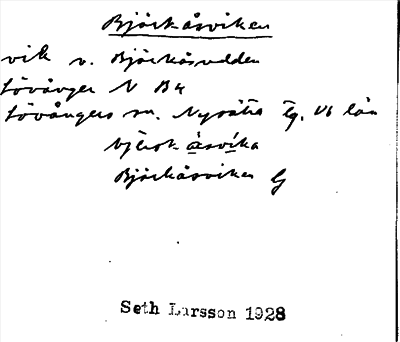 Björkåsviken
vik v. Björkåsudden
Lövånger N B4
Lövångers sn. Nysätra tg. Vb län
björk-åsvíka
Björkåsviken G
Seth Larsson 1928